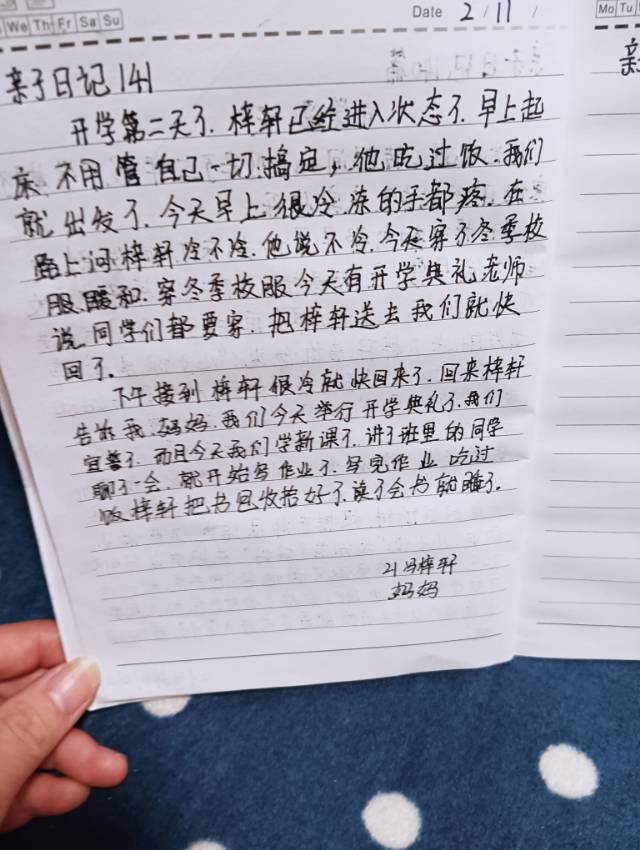 Date 2/11/
We Th Fr Sa Su
Mo Tu
亲子日记141
亲
开学第二天了.梓轩已经进入状态了.早上起
床.不用管自己一切搞定,他吃过饭.我们
就出发了.今天早上很冷.冻的手都疼.在
路上问梓轩冷不冷.他说不冷.今天穿了冬季校
服.暖和.穿冬季校服今天有开学典礼老师
说同学们都要穿.把梓轩送去我们就快
回了.
下午接到梓轩很冷就快回来了.回来梓轩
告诉我.妈妈.我们今天举行开学典礼了.我们
宣誓了.而且今天我们学新课了.讲了班里的同学
聊了一会.就开始写作业了.写完作业吃过
饭梓轩把书包收拾好了.读了会书就睡了.
21冯梓轩
妈妈